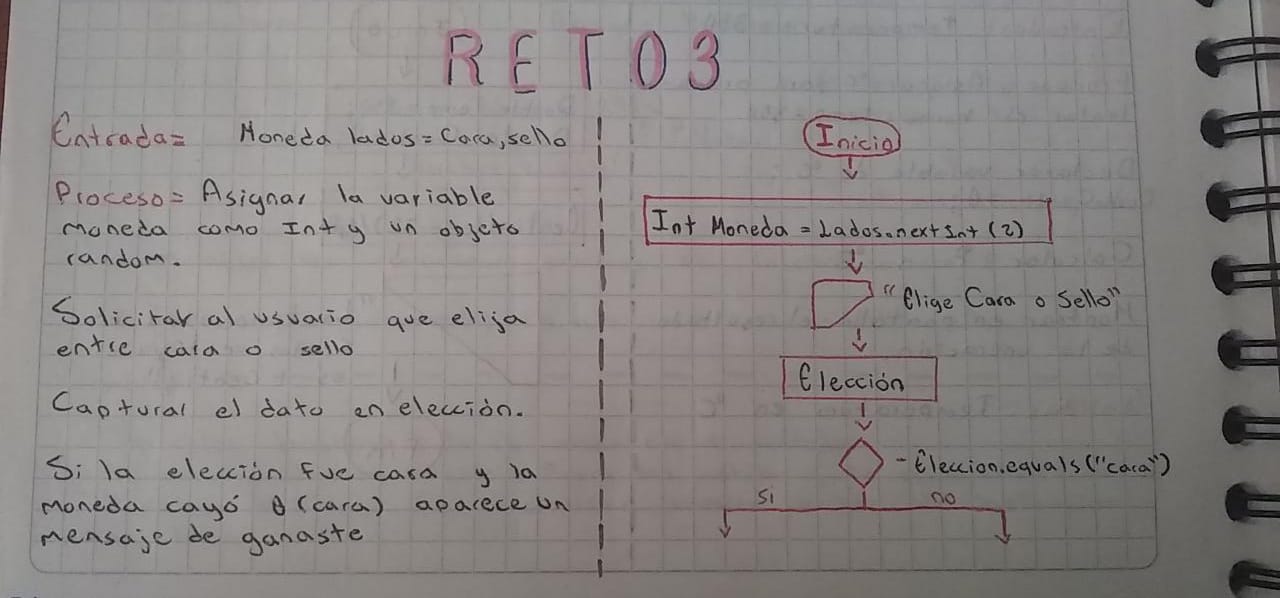 RETO3
Entrada= Moneda lados= Cara, sello
Proceso= Asignar la variable
moneda como Int y un objeto
random.
Solicitar al usuario que elija
entre cara o sello
Captural el dato en elección.
Si la elección fue cara y la
moneda cayó 0 (cara) aparece un
mensaje de ganaste
Inicio
Int Moneda = Lados.nextInt (2)
"Elige Cara o Sello"
Elección
- Eleccion.equals("cara")
Si no